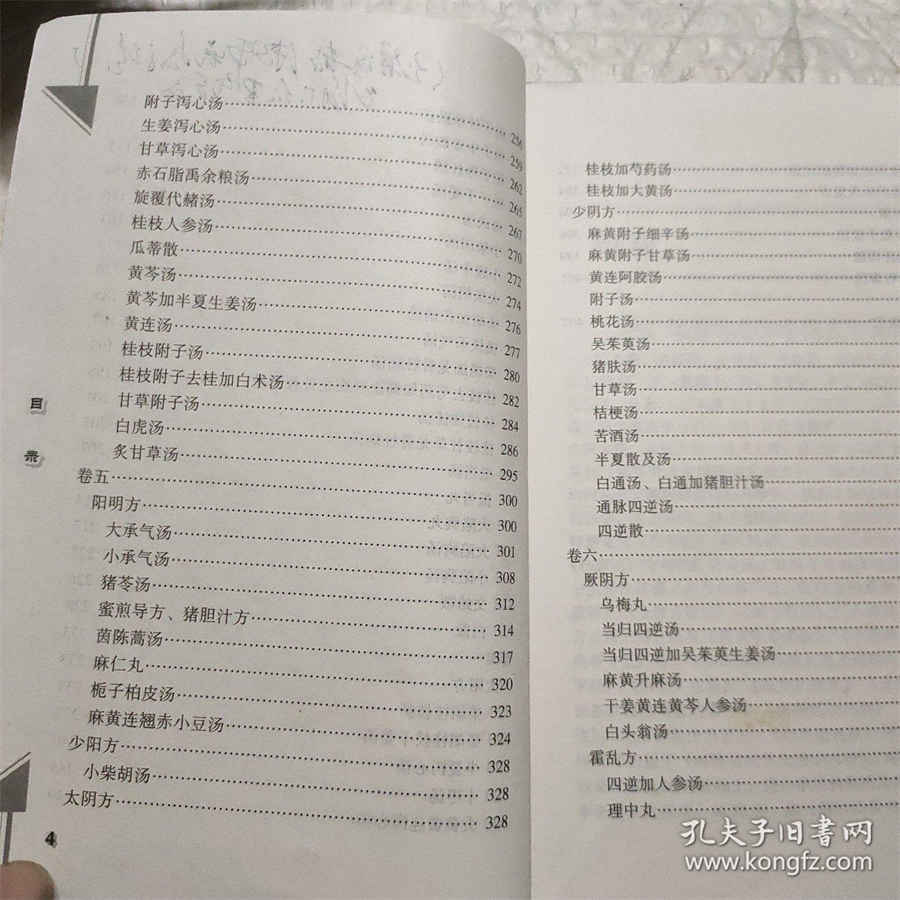 附子泻心汤 256
生姜泻心汤 259
甘草泻心汤 262
赤石脂禹余粮汤 265
旋覆代赭汤 267
桂枝人参汤 270
瓜蒂散 272
黄芩汤 274
黄芩加半夏生姜汤 276
黄连汤 277
桂枝附子汤 280
桂枝附子去桂加白术汤 282
甘草附子汤 284
白虎汤 286
炙甘草汤 295
卷五 300
阳明方 300
大承气汤 301
小承气汤 308
猪苓汤 312
蜜煎导方、猪胆汁方 314
茵陈蒿汤 317
麻仁丸 320
栀子柏皮汤 323
麻黄连翘赤小豆汤 324
少阳方 328
小柴胡汤 328
太阴方 328
目录
4
桂枝加芍药汤
桂枝加大黄汤
少阴方
麻黄附子细辛汤
麻黄附子甘草汤
黄连阿胶汤
附子汤
桃花汤
吴茱萸汤
猪肤汤
甘草汤
桔梗汤
苦酒汤
半夏散及汤
白通汤、白通加猪胆汁汤
通脉四逆汤
四逆散
卷六
厥阴方
乌梅丸
当归四逆汤
当归四逆加吴茱萸生姜汤
麻黄升麻汤
干姜黄连黄芩人参汤
白头翁汤
霍乱方
四逆加人参汤
理中丸
孔夫子旧书网
www.kongfz.com